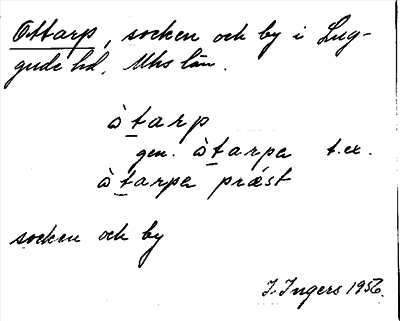 Ottarp, socken och by i Lug-
gude hd, Mhs län.
òtarp
gen. òtarpa t.ex.
òtarpa præst
socken och by
I. Ingers 1956.